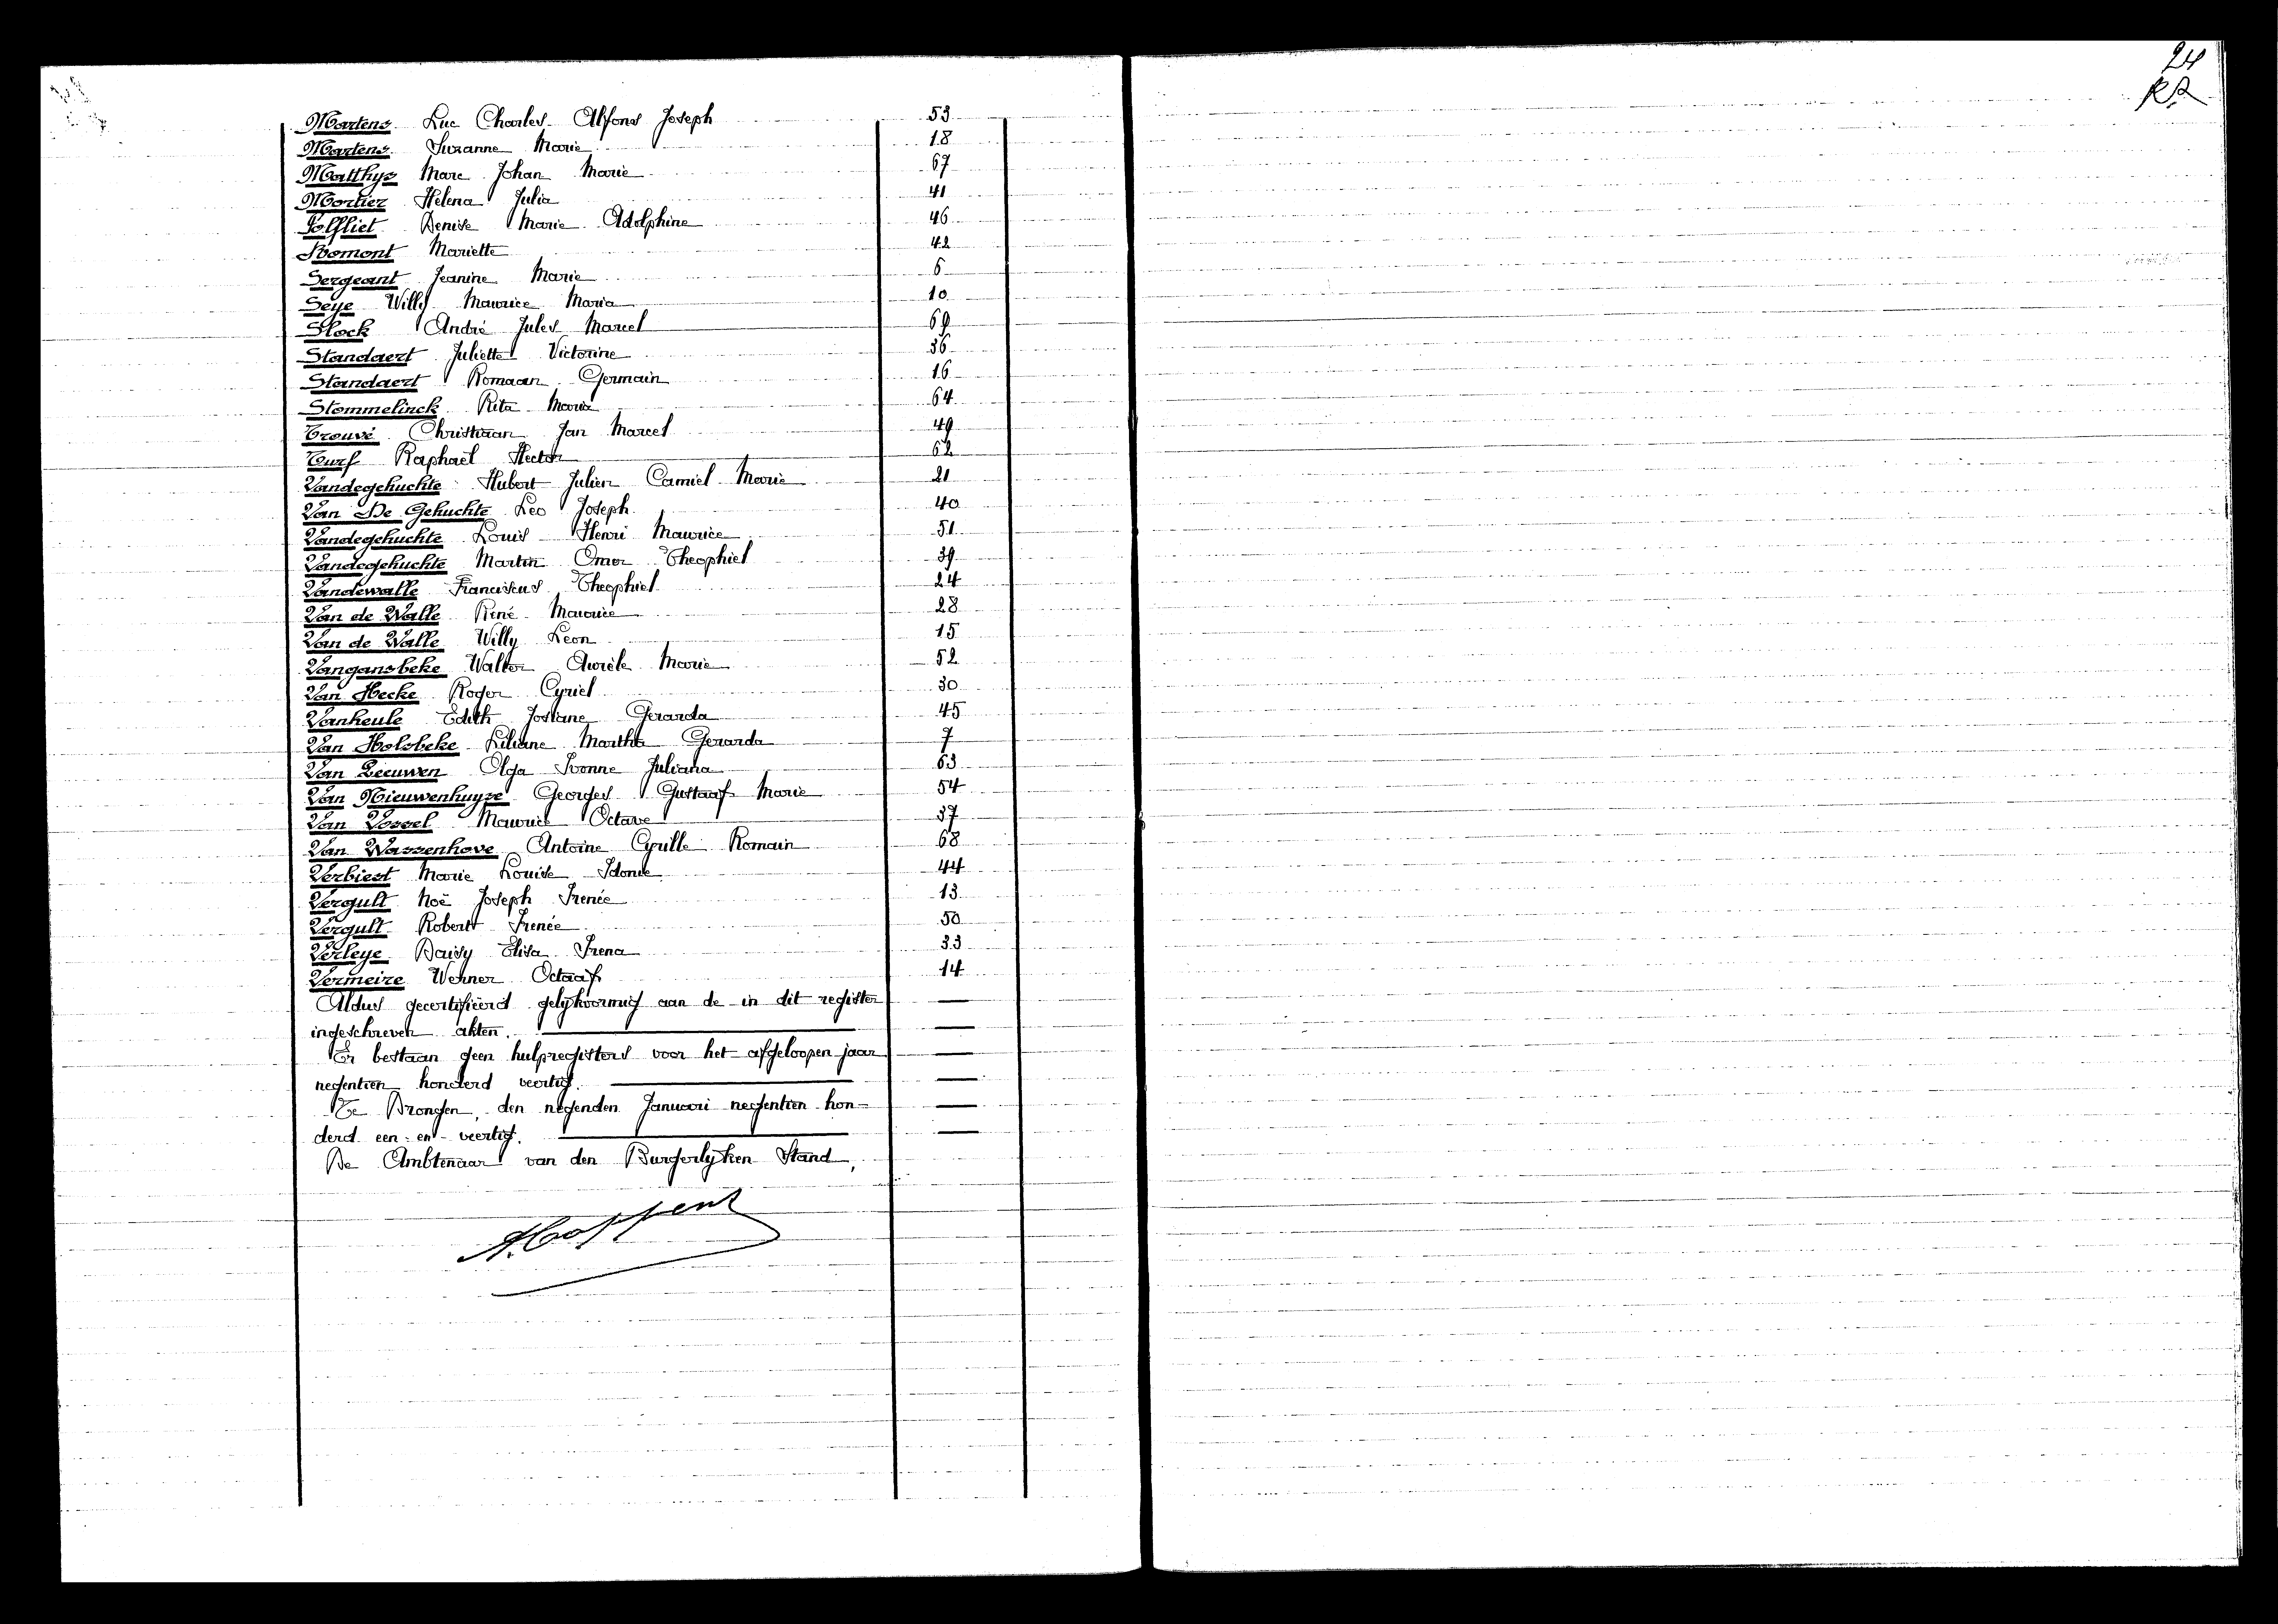 Martens Luc Charles Alfons Joseph 53
Martens Suzanne Marie 18
Matthys Marc Johan Marie 67
Mortier Helena Julia 41
Polfliet Denise Marie Adolphine 46
Romont Mariette 42
Sergeant Jeanine Marie 6
Seye Willy Maurice Maria 10
Slock André Jules Marcel 69
Standaert Juliette Victorine 36
Standaert Romaan Germain 16
Stommelinck Rita Maria 64
Trouvé Christiaan Jan Marcel 49
Turf Raphaël Hector 62
Vandegehuchte Hubert Julien Camiel Marie 21
Van De Gehuchte Leo Joseph 40
Vandegehuchte Louis Henri Maurice 51
Vandegehuchte Martin Omer Theophiel 39
Vandewalle Franciscus Theophiel 24
Van de Walle René Maurice 28
Van de Walle Willy Leon 15
Vangansbeke Walter Aurèle Marie 52
Van Hecke Roger Cyriel 30
Vanheule Edith Josiane Gerarda 45
Van Holsbeke Liliane Martha Gerarda 7
Van Leeuwen Olga Ivonne Juliana 63
Van Nieuwenhuyse Georges Gustaaf Marie 54
Van Vossel Maurice Octave 37
Van Wassenhove Antoine Cyrille Romain 68
Verbiest Marie Louise Idonie 44
Vergult Noë Joseph Irenée 13
Vergult Robert Irenée 50
Verleye Daisy Elisa Irena 33
Vermeire Werner Octaaf 14
Aldus gecertifieerd gelijkvormig aan de in dit register
ingeschreven akten.
Er bestaan geen hulpregisters voor het afgeloopen jaar
negentien honderd veertig.
Te Drongen, den negenden Januari negentien hon-
derd een-en-veertig.
De Ambtenaar van den Burgerlyken Stand,
A. Coppens
24